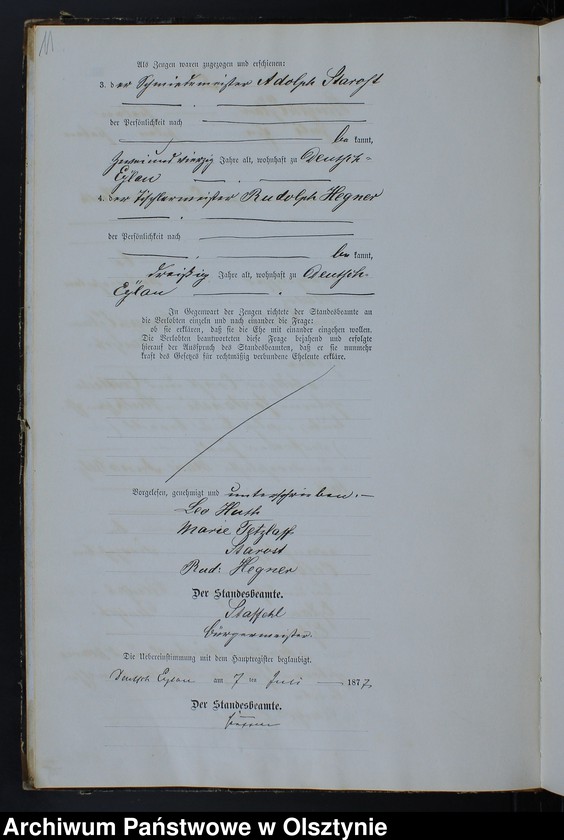 11
Als Zeugen waren zugezogen und erschienen:
3. der Schmiedemeister Adolph Starost
der Persönlichkeit nach
be kannt,
zweiundvierzig Jahre alt, wohnhaft zu Deutsch-
Eylau
4. der Tischlermeister Rudolph Hegner
der Persönlichkeit nach
be kannt,
dreißig Jahre alt, wohnhaft zu Deutsch-
Eylau
In Gegenwart der Zeugen richtete der Standesbeamte an
die Verlobten einzeln und nach einander die Frage:
ob sie erklären, daß sie die Ehe mit einander eingehen wollen.
Die Verlobten beantworteten diese Frage bejahend und erfolgte
hierauf der Ausspruch des Standesbeamten, daß er sie nunmehr
kraft des Gesetzes für rechtmäßig verbundene Eheleute erkläre.
Vorgelesen, genehmigt und unterschrieben.
Leo Huth
Marie Tetzlaff
Starost
Rud: Hegner
Der Standesbeamte.
Staffehl
Bürgermeister.
Die Uebereinstimmung mit dem Hauptregister beglaubigt.
Deutsch Eylau am 7 ten Juli 1877
Der Standesbeamte.
Archiwum Państwowe w Olsztynie